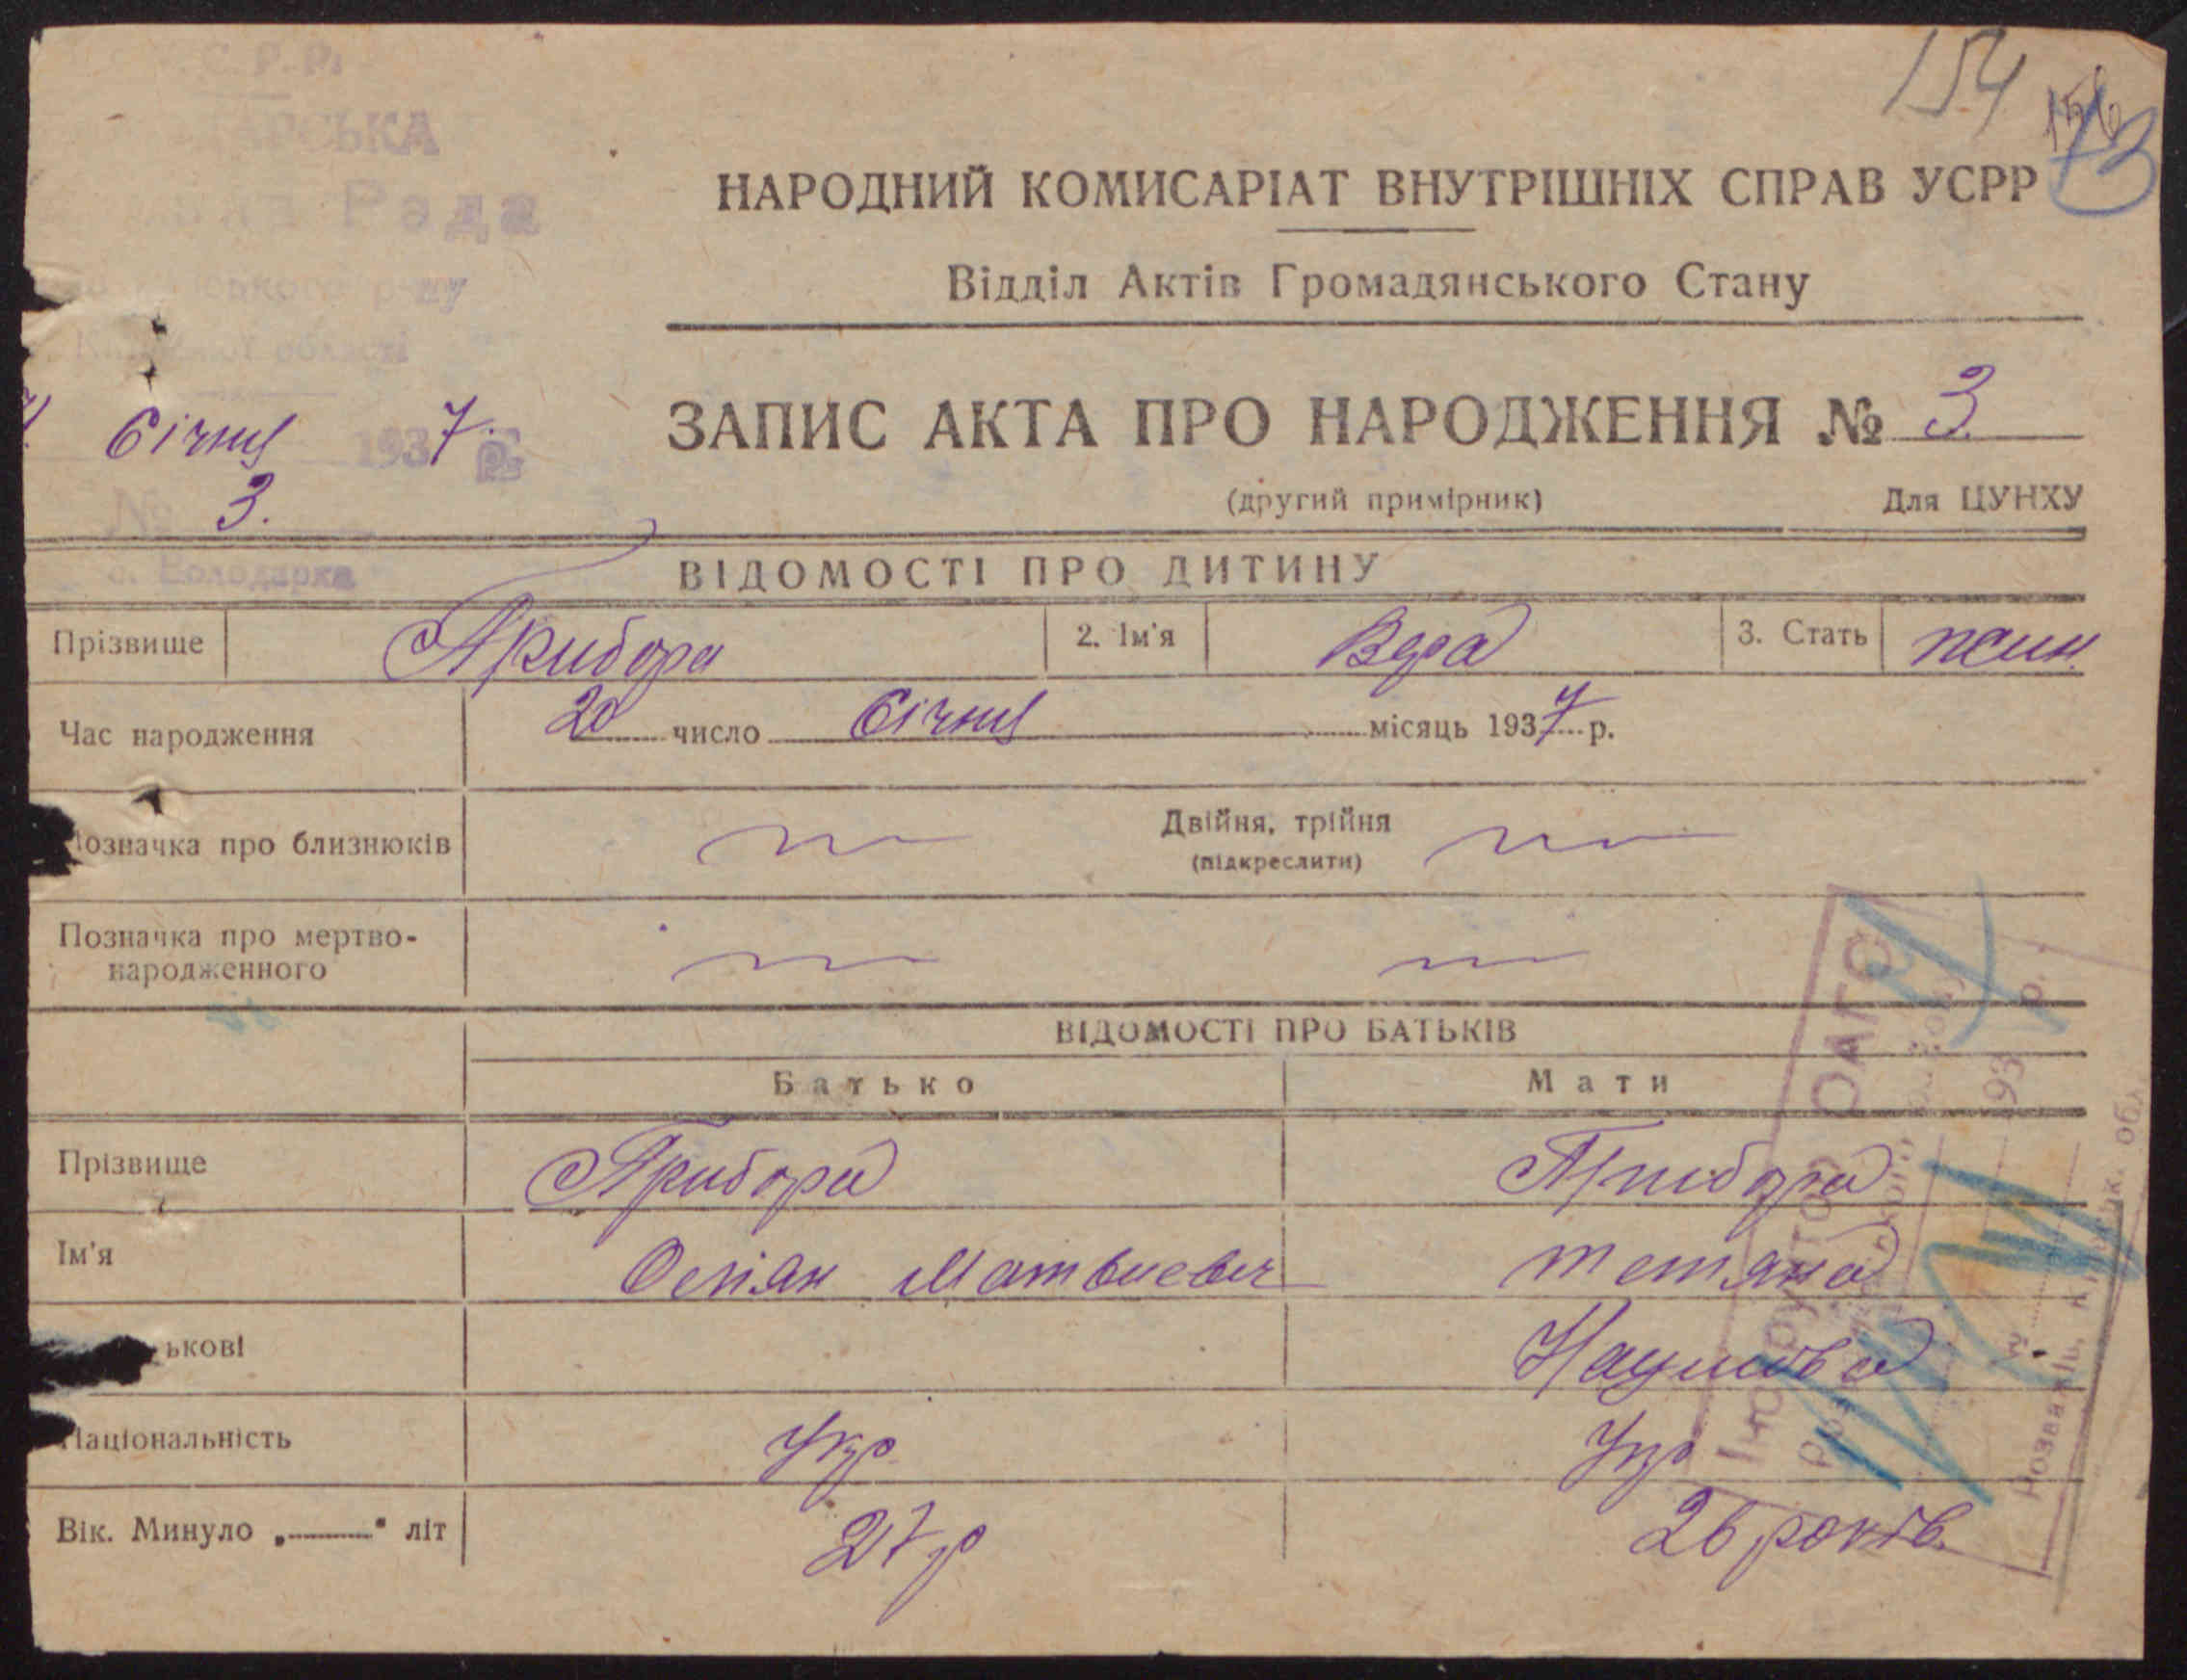 154
13
С. Р. Р.
Рада
області
НАРОДНИЙ КОМИСАРІАТ ВНУТРІШНІХ СПРАВ УСРР
Відділ Актів Громадянського Стану
Січня 1937 р.
ЗАПИС АКТА ПРО НАРОДЖЕННЯ № 3.
№ 3.
(другий примірник) Для ЦУНХУ
с. Володарка
ВІДОМОСТІ ПРО ДИТИНУ
Прізвище Прибора 2. Ім'я Вера 3. Стать жин.
Час народження 20 число Січня місяць 1937 р.
Позначка про близнюків Двійня, трійня
(підкреслити)
Позначка про мертво-
народженного
ВІДОМОСТІ ПРО БАТЬКІВ
Батько Мати
Прізвище Прибора Прибора
Ім'я Матвиевич Тетяна
ькові Наумовна
Національність Укр. Укр
Вік. Минуло „———" літ 27 р 26 років.
Інструктор ОАГС
193 р.